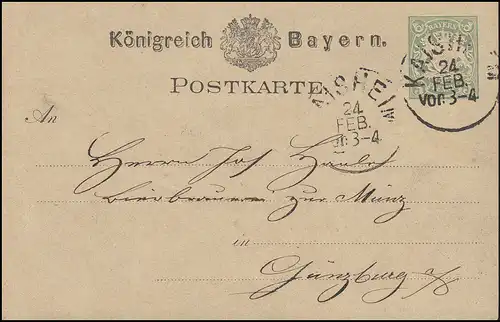 Königreich Bayern.
POSTKARTE.
KAISHEIM
24
FEB.
Vor. 3-4
KAISH
24
FEB.
Vor. 3-4
An
Herrn Jos
Bierbrauer zur Münz
in
Günzburg a/